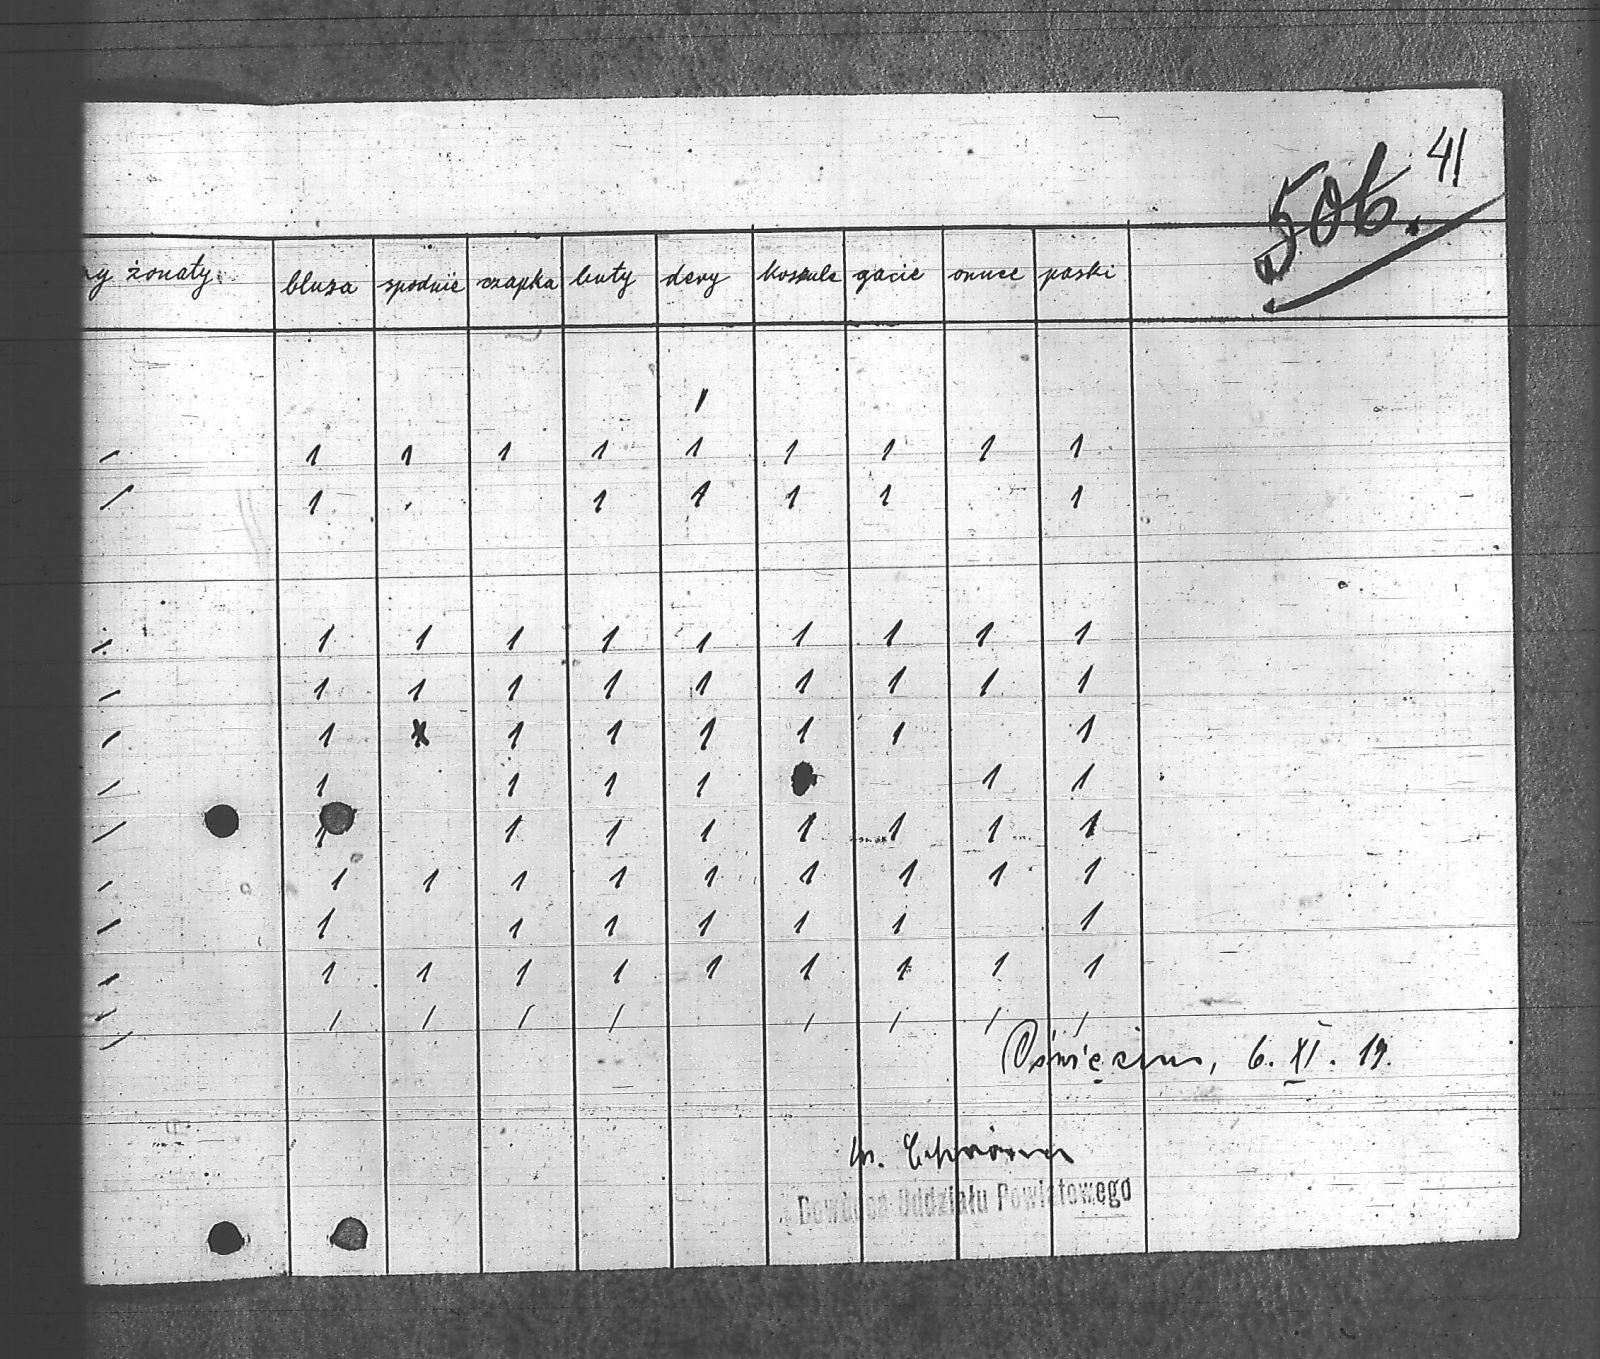 41
506.
żonaty. bluza spodnie czapka buty dery koszule gacie onuce paski
1
1 1 1 1 1 1 1 1 1
1 1 1 1 1 1
1 1 1 1 1 1 1 1 1
1 1 1 1 1 1 1 1 1
1 1 1 1 1 1 1
1 1 1 1 1 1
1 1 1 1 1 1 1 1
1 1 1 1 1 1 1 1 1
1 1 1 1 1 1 1
1 1 1 1 1 1 1 1 1
/ / / / / / / /
Oświęcim, 6. XI. 19.
Dowódca Oddziału Powiatowego